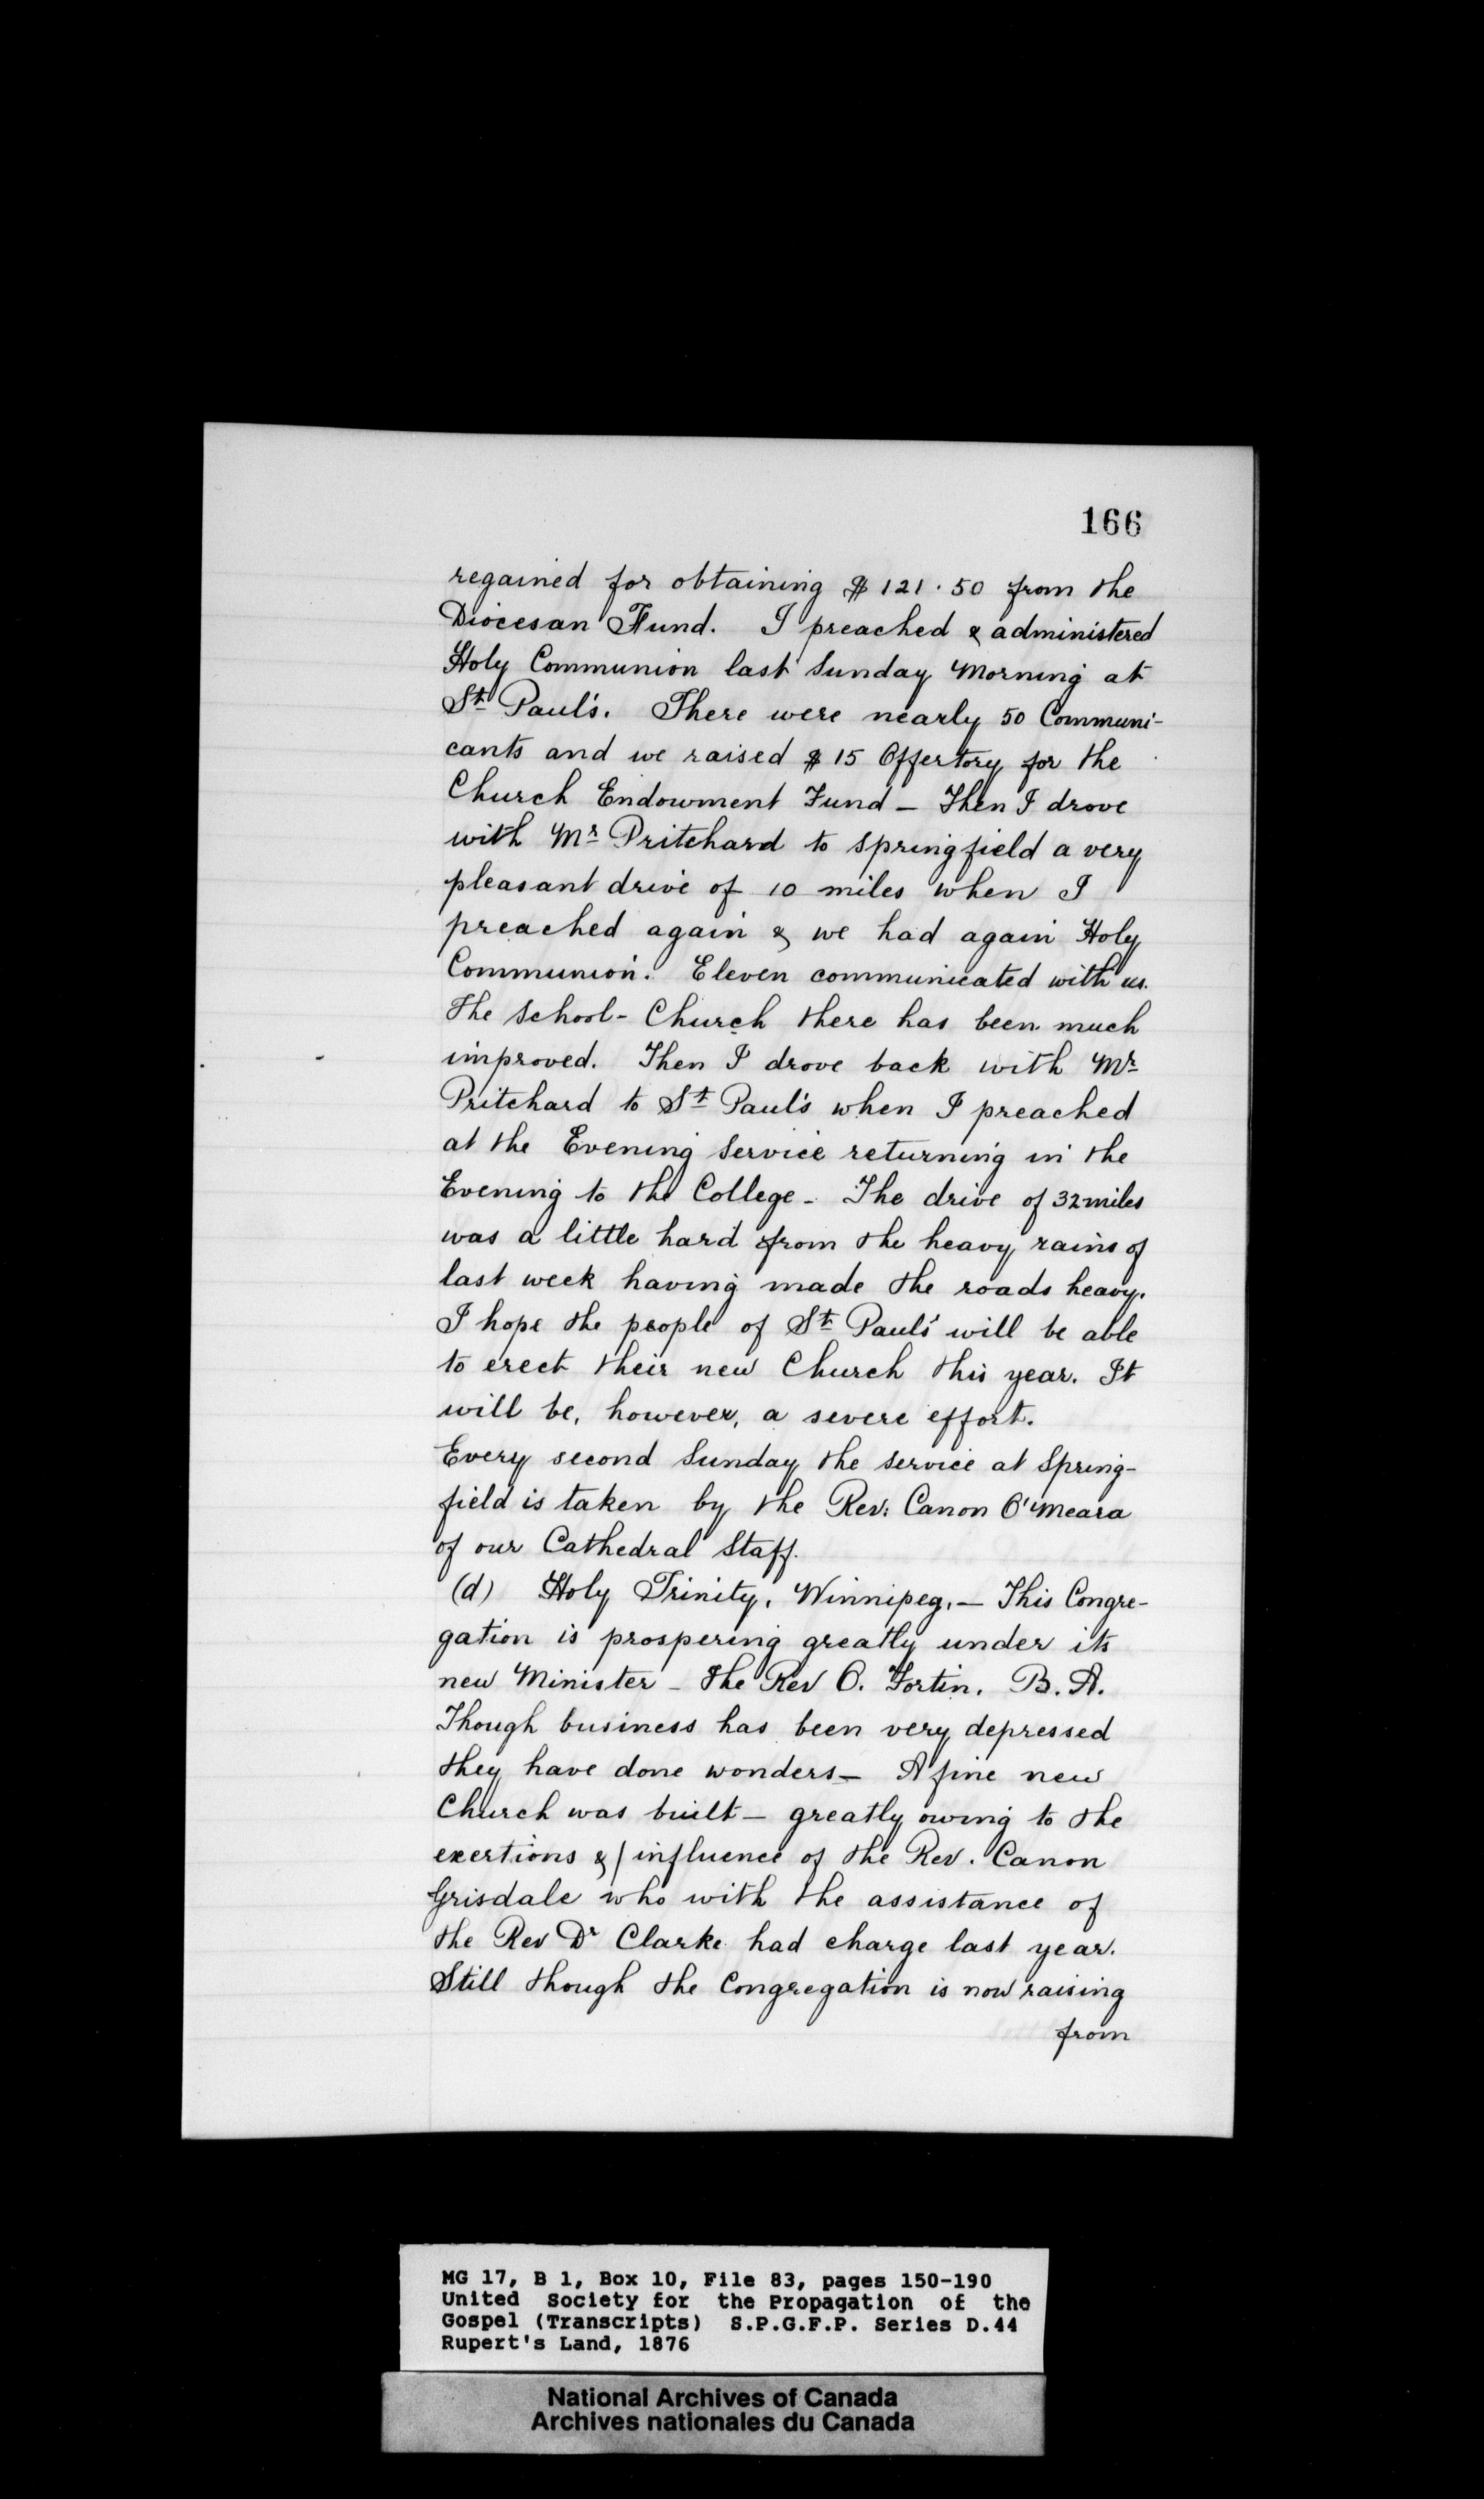 166
regained for obtaining $121.50 from the
Diocesan Fund. I preached & administered
Holy Communion last Sunday Morning at
St Paul's. There were nearly 50 Communi-
cants and we raised $15 Offertory for the
Church Endowment Fund — Then I drove
with Mr Pritchard to Springfield a very
pleasant drive of 10 miles when I
preached again & we had again Holy
Communion. Eleven communicated with us.
The School-Church there has been much
improved. Then I drove back with Mr
Pritchard to St Paul's when I preached
at the Evening Service returning in the
Evening to the College - The drive of 32 miles
was a little hard from the heavy rains of
last week having made the roads heavy.
I hope the people of St Paul's will be able
to erect their new Church this year. It
will be, however, a severe effort.
Every second Sunday the Service at Spring-
field is taken by the Rev: Canon O'Meara
of our Cathedral Staff.
(d) Holy Trinity, Winnipeg, — This Congre-
gation is prospering greatly under its
new Minister - The Rev O. Fortin. B.A.
Though business has been very depressed
they have done wonders — A fine new
Church was built — greatly owing to the
exertions & / influence of the Rev. Canon
Grisdale who with the assistance of
the Rev Dr Clarke had charge last year.
Still though the Congregation is now raising
from
MG 17, B 1, Box 10, File 83, pages 150-190
United Society for the Propagation of the
Gospel (Transcripts) S.P.G.F.P. Series D.44
Rupert's Land, 1876
National Archives of Canada
Archives nationales du Canada